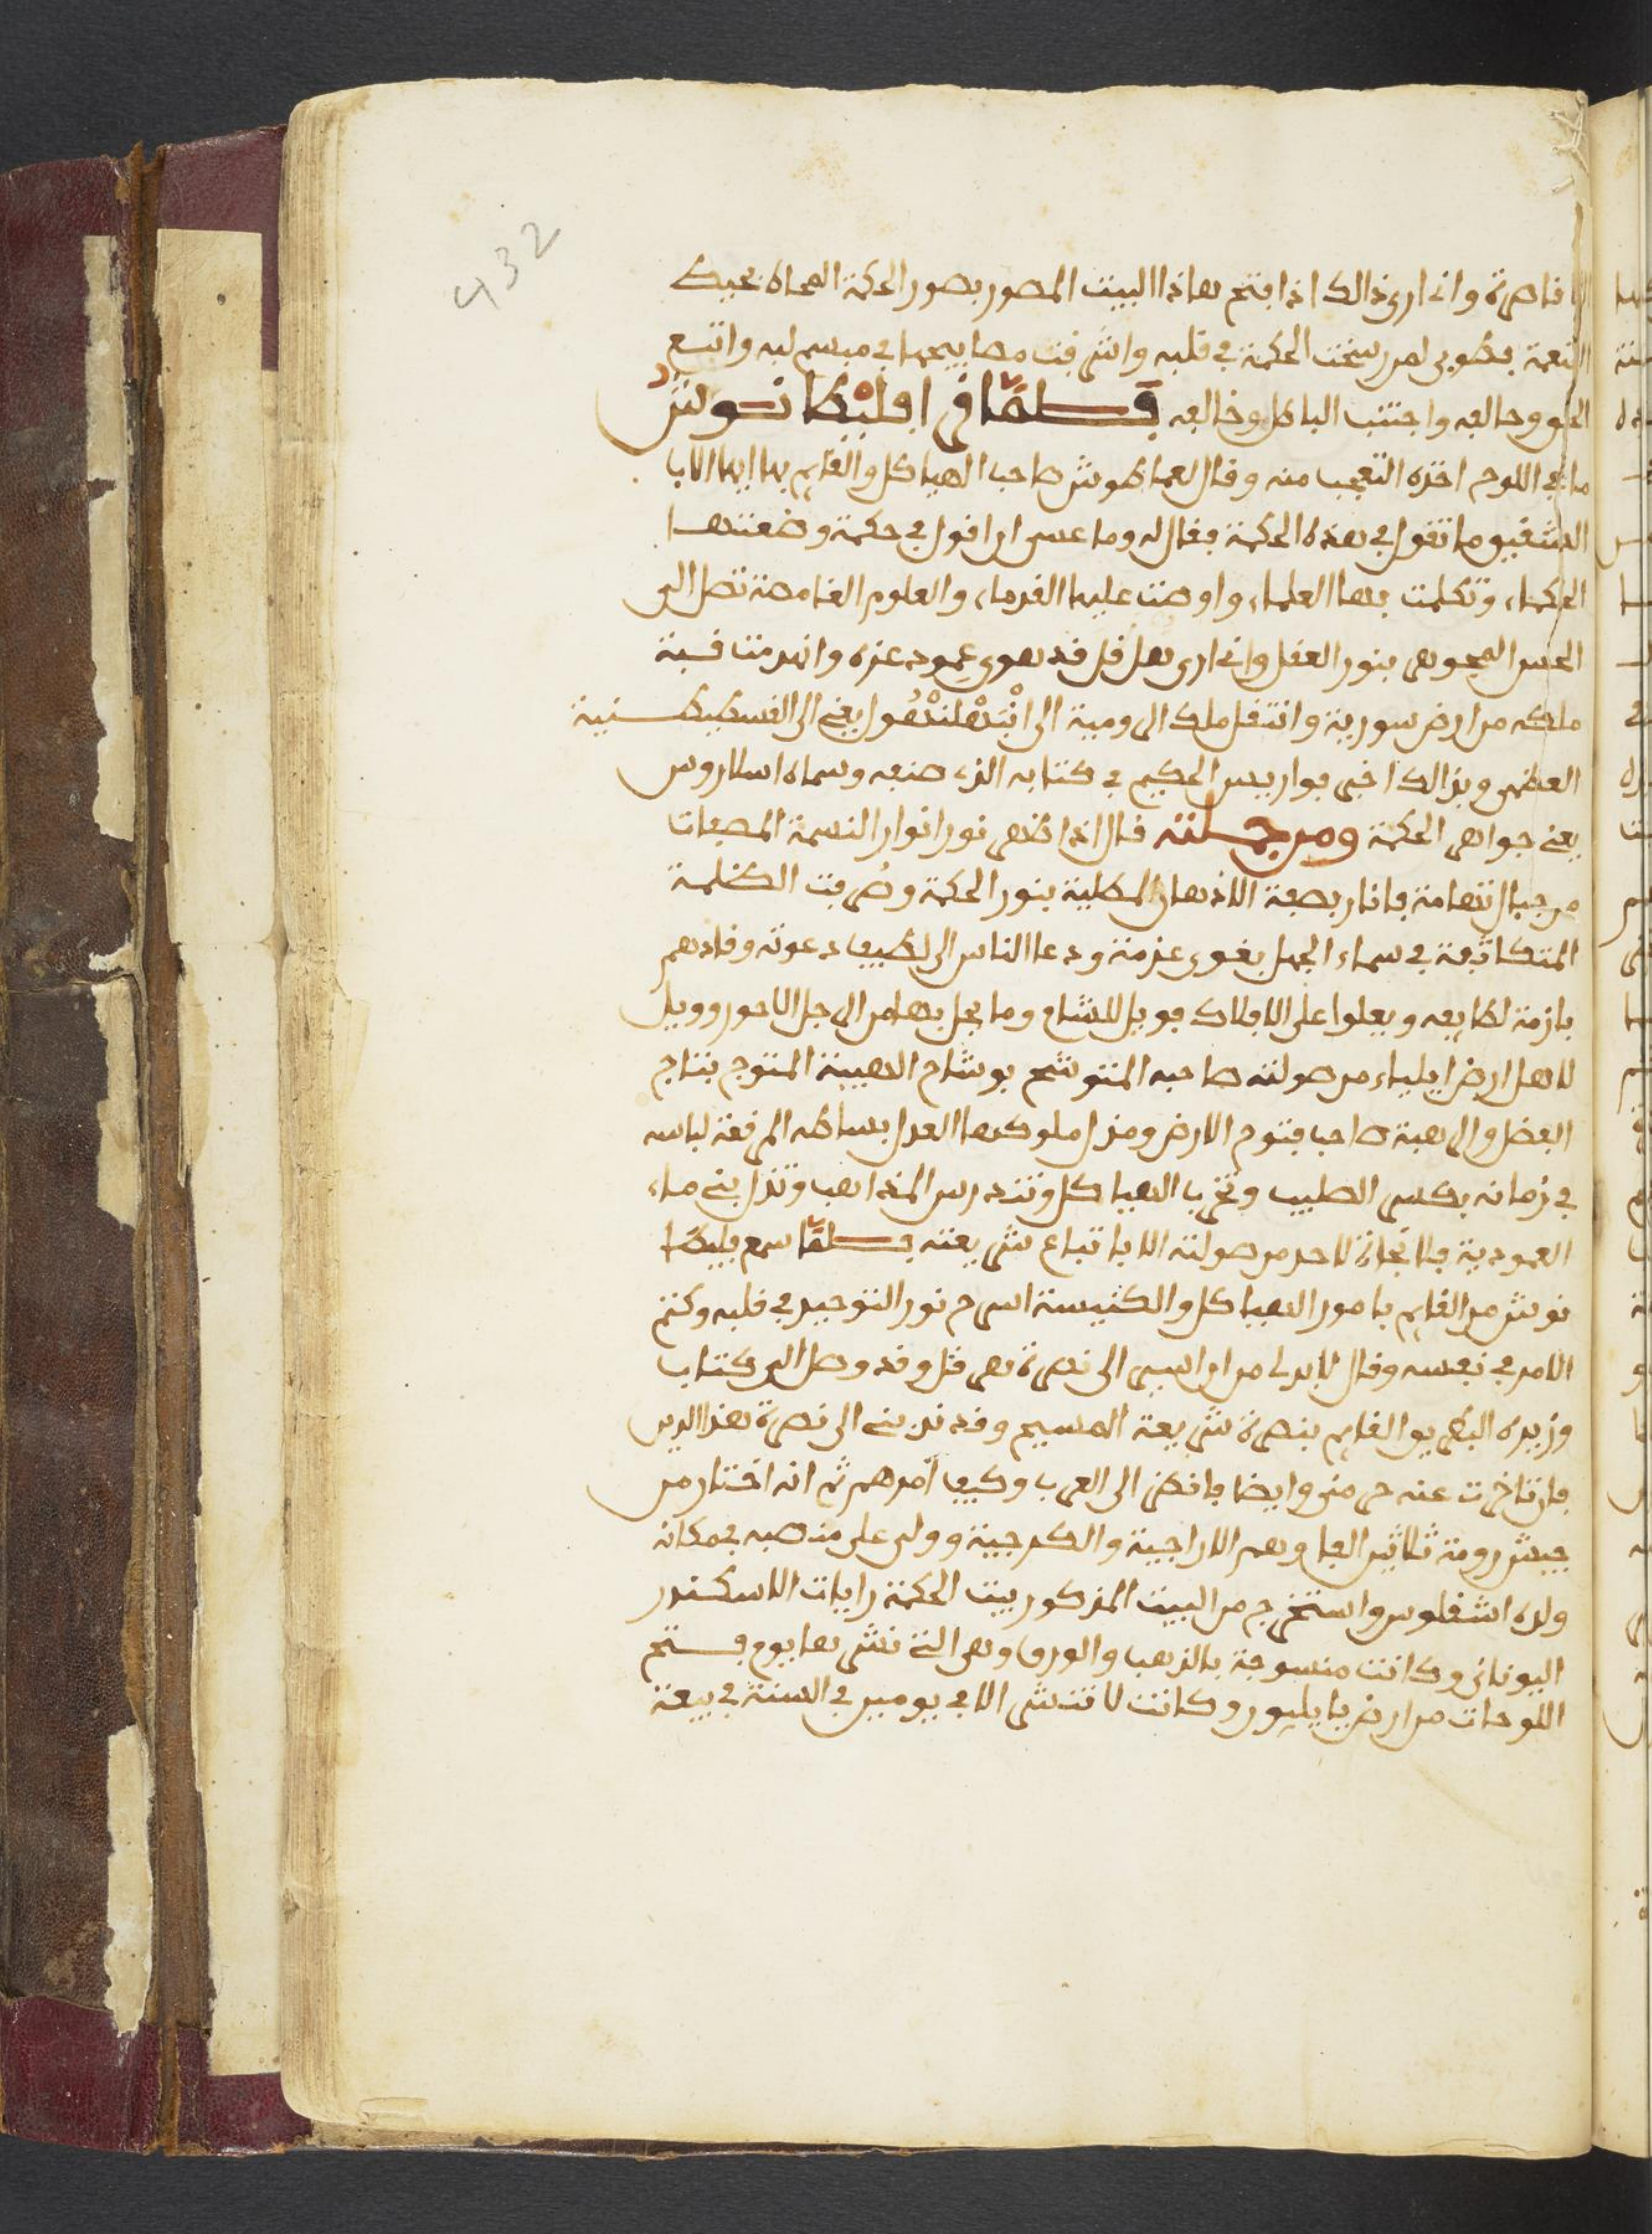 432
قاصرة وانى ارى ذالك اذا فتح هاذا البيت المصور بصور الحكمة المحاه بحبك
النعمة فطوبى لمن رسخت الحكمة في قلبه واشرقت مصابيحها في مبسم لبه واتبع
الحق وحالفه واجتنب الباطل وخالفه فلما قرا افليطانوش
ما في اللوح اخذه التعجب منه وقال لعماطوش صاحب الهياكل والقايم بها ايها الاب
الشفيق ما تقول في هذه الحكمة فقال له وما عسى ان اقول في حكمة وضعتها
الحكماء وتكلمت بها العلماء واوصت عليها القدماء والعلوم الغامضة تصل الى
الحس الجوهر بنور العقل وانى ارى هرقل قد هوى عمود عزه وانهدمت قبة
ملكه من ارض سورية وانتقل ملك الرومية الى يعنى الى القسطيطنية
العظمى وبذالك اخبر فواريس الحكيم في كتابه الذى صنعه وسماه اسلاروس
يعنى جواهر الحكمة ومن جملته قال اذا ظهر نور انوار النسمة المصعات
من جبال تهامة فانار بصفة الاذهان المكلية بنور الحكمة وصرفت الظلمة
المتكاثفة في سماء الجهل بقوى عزمة ودعا الناس الى لطيف دعوته وقادهم
بازمة لطايفه ويعلوا على الافلاك فويل للشام وما يحل بها من الرجل الاحور وويل
لاهل ارض ايلياء من صولته صاحبه المتوشح بوشاح الهيبة المتوج بتاج
الفضل والرهبة صاحب فتوح الارض ومذل ملوكها العدل بساطه المرقعة لباسه
في زمانه يكسر الصليب وتخرب الهياكل وتندرس المذاهب وتذل بنى ماء
العمودية فلا نجاة لاحد من صولته الا باتباع شريعته فلما سمع فليطا
نوش من القايم بامور الهياكل والكنيسة اسرح نور التوحيد في قلبه وكتم
الامر في نفسه وقال لا بد لى من ان اسير الى نصرة هرقل وقد وصل الى كتاب
وزيره البطريق القايم بنصرة شريعة المسيح وقد ندبنى الى نصرة هذا الدين
فان تاخرت عنه حرمنى وايضا فانظر الى العرب وكيف امرهم ثم انه اختار من
جيش رومة ثلاثين الفا وهم الاراجية والكرجية وولى على منصبه بمكانه
ولده اشفلوس واستخرج من البيت المذكور بيت الحكمة رايات الاسكندر
اليونانى وكانت منسوجة بالذهب والورق وهى التى نشرها يوم فتح
اللوحات من ارض بابليون وكانت لا تنشر الا في يومين في السنة في بيعة